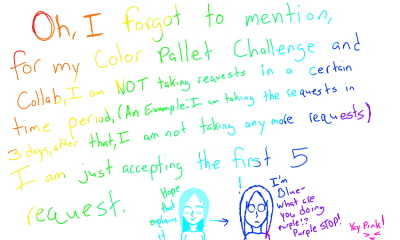 Oh, I forgot to mention,
for my Color Pallet Challenge and
Collab, I am NOT taking requests in a certain
time period, (An Example: I am taking the requests in
3 days, after that, I am not taking any more requests)
I am just accepting the first 5
request.
Hope
that
explains
it
I'm
Blue-
what are
you doing
purple!?
Purple STOP!
Yay Pink!